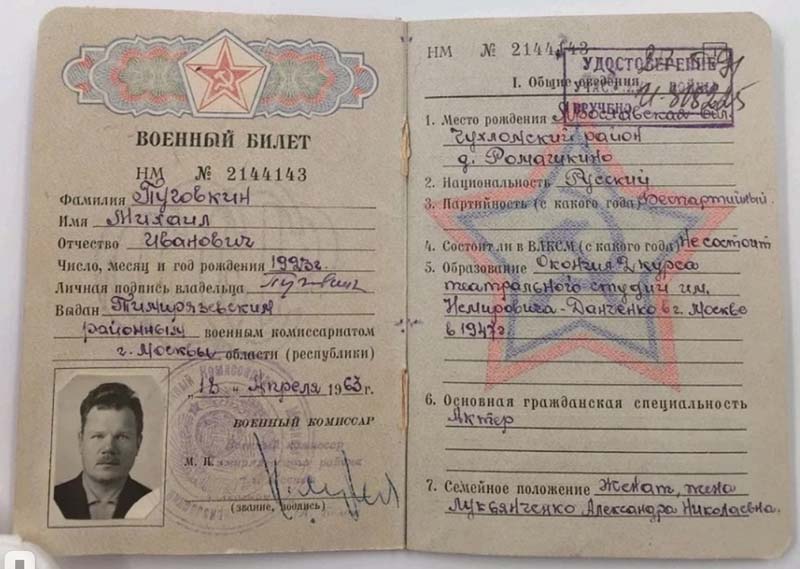 ВОЕННЫЙ БИЛЕТ
НМ № 2144143
Фамилия Пуговкин
Имя Михаил
Отчество Иванович
Число, месяц и год рождения 1923г.
Личная подпись владельца
Выдан Тимирязевским
районным военным комиссариатом
г. Москвы области (республики)
„18 " Апреля 1963 г.
ВОЕННЫЙ КОМИССАР
Военный комиссар
района
М. П.
(звание, подпись)
НМ № 2144143
УДОСТОВЕРЕНИЕ
ВОЙНЫ
ВРУЧЕНО
I. Общие сведения
1. Место рождения Ярославская обл.
Чухломский район
д. Ромашкино
2. Национальность Русский
3. Партийность (с какого года) Беспартийный
4. Состоит ли в ВЛКСМ (с какого года) Не состоит
5. Образование Окончил 2 курса
театральной студии им.
Немировича-Данченко в г. Москве
в 1947г
6. Основная гражданская специальность
Актер
7. Семейное положение Женат, жена
Лукьянченко Александра Николаевна.